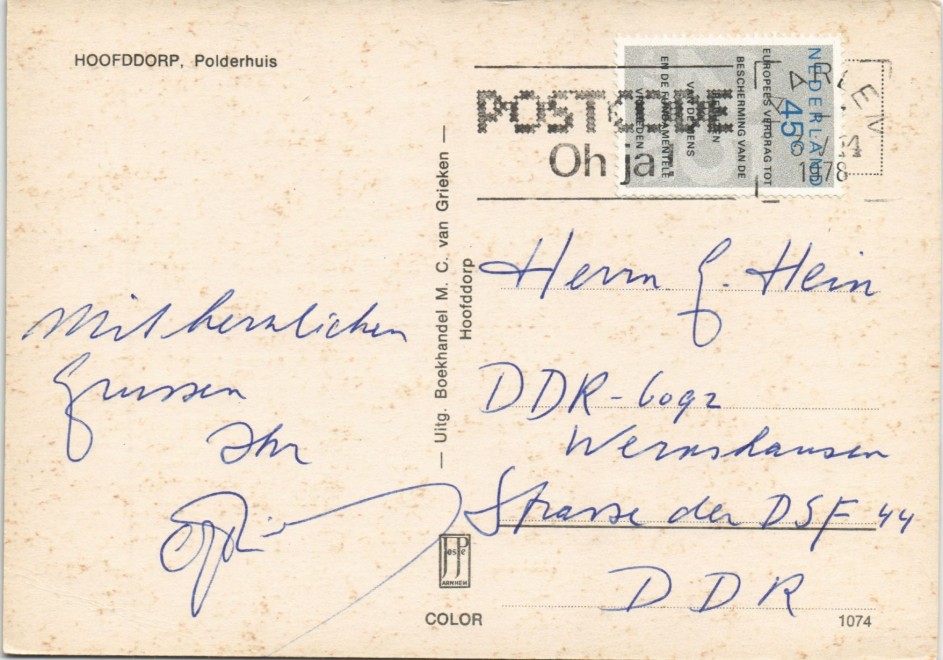 HOOFDDORP, Polderhuis
POSTCODE
Oh ja!
NEDERLAND
45c
EUROPEES VERDRAG TOT
BESCHERMING VAN DE
RECHTEN
VAN DE MENS
EN DE FUNDAMENTELE
VRIJHEDEN
1978
Mit herzlichen
Grussen
Ihr
— Uitg. Boekhandel M. C. van Grieken —
Hoofddorp
Herrn G. Hein
DDR-6092
Wernshausen
Strasse der DSF 44
DDR
JosPé
ARNHEM
COLOR
1074